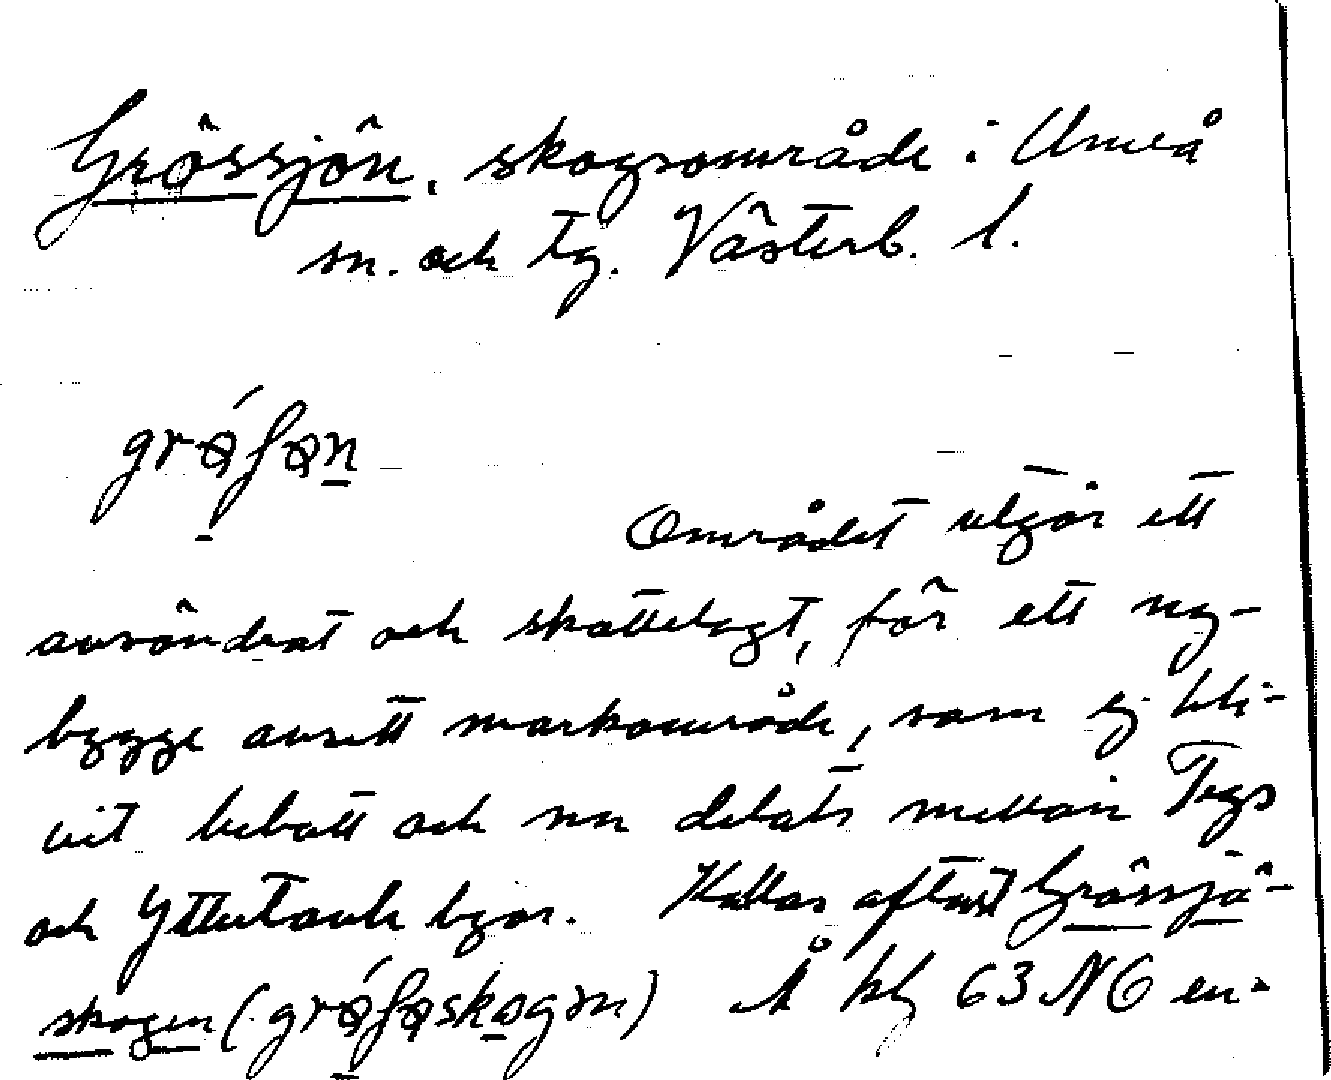 Grössjön, skogsområde i Umeå
sn. och tg. Västerb. l.
grǿʃøn
Området utgör ett
användrat och skattelagt, för ett ny-
bygge avsett markområde, som ej bli-
vit bebott och nu delats mellan Tegs
och Yttertavle byar. Kallas oftast Grössjö-
skogen (grǿʃøskogɜn) Å kbl 63 NG en-